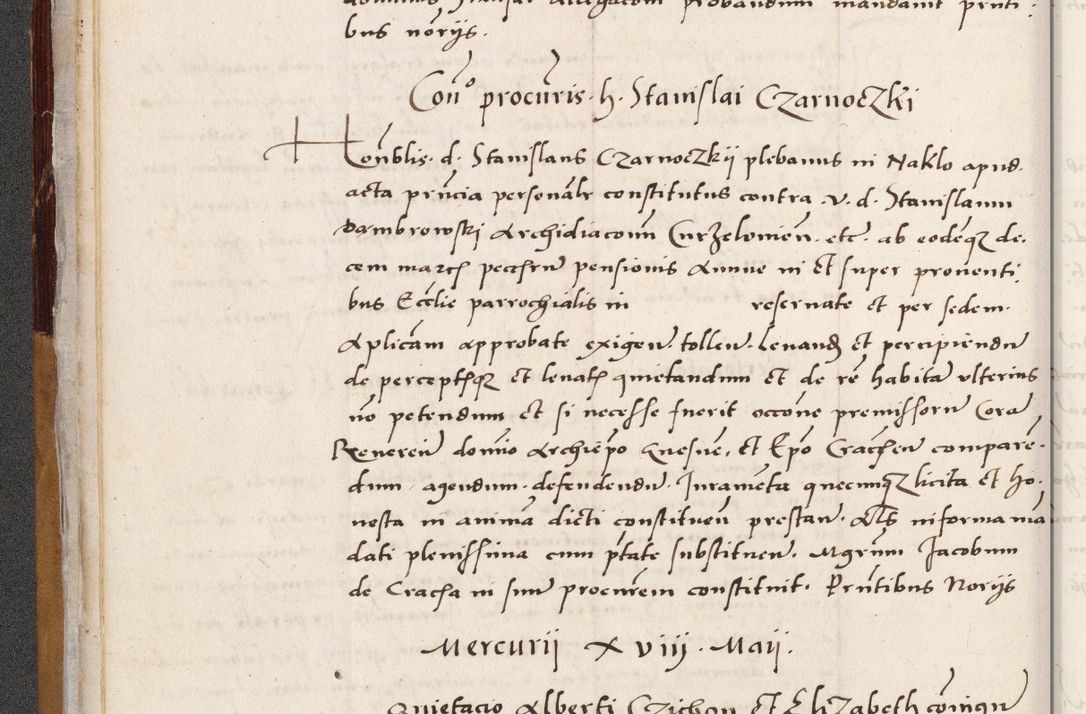 dominus Stanislai allegacom probandum mandavit pnti
bus noriis.
Cõno procuris. h. Stanislai Czarnoczki
Honblis. d. Stanislaus Czarnoczkij plebanus in Naklo apud.
acta pñcia personalr constitutus contra v. d. Stanislaum
Dambrowskj Archidiaconũ Curzelovieñ. etc. ab eodẽqz de.
cem march pecchrũ pensionis annue in et super proventi.
bus Ecclie parrochialis in reservate et per sedem.
Aplicam approbate exigeñ. tolleñ. levand et percipiendũ
de perceptisqz et levatis quietandum et de rẽ habita ulterius
nõ petendum et si necesse fuerit occõne premissorũ Corã
Reverenñ domĩo Archiepõ Gnesneñ, et Epõ Cracheñ comparẽ.
dum. agendum. defendendũ. Juramẽta quecũqz licita et ho.
nesta in animã dicti constituẽn prestanñ. als in forma mã
dati plenissima cum ptate substituenñ. Mgrum Jacobum
de Cracha in suũ procurem constituit. Prñtibus Noriis
Mercurii XVIII. Maii.
Quietacio Alberti Czichon et Elizabeth coniugũ